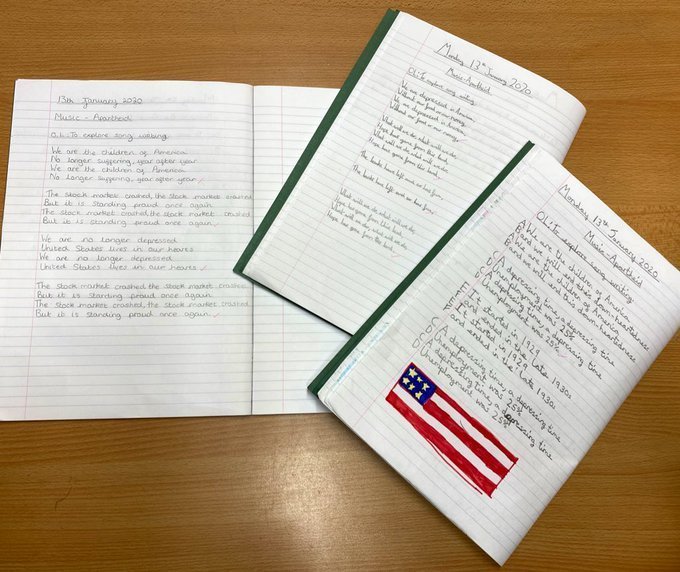 13th January 2020
Music - Apartheid
O.L:To explore song writing
We are the children of America
No longer suffering, year after year
We are the children of America
No longer suffering, year after year
The stock market crashed, the stock market crashed
But it is standing proud once again
The stock market crashed, the stock market crashed
But it is standing proud once again.
We are no longer depressed
United States lives in our hearts
We are no longer depressed
United States lives in our hearts
The stock market crashed, the stock market crashed
But it is standing proud once again
The stock market crashed, the stock market crashed
But it is standing proud once again.
Monday 13th January 2020
Music-Apartheid
OL:To explore song writing.
We are depressed in America,
Without our food or our money.
We are depressed in America,
Without our food or our money.
What will we do, what will we do,
Hope has gone from this land.
What will we do, what will we do,
Hope has gone from this land.
The banks have left and we
The banks have left and we
What will we do, what will we do,
Hope has gone from this land.
What will we do, what will we do,
Hope has gone from this land.
Monday 13th January 2020
Music-Apartheid
OL:To explore song writing
A We are the children of America
and we will end this down heartedness
A We are the children of America
B and we will end this down heartedness
C A depressing time, a depressing time
D Unemployment was 25%
C A depressing time, a depressing time
D Unemployment was 25%
E It started in 1929
F and ended in the late 1930s
E It started in 1929
F and ended in the late 1930s
C A depressing time, a depressing time
D Unemployment was 25%
C A depressing time, a depressing time
D Unemployment was 25%